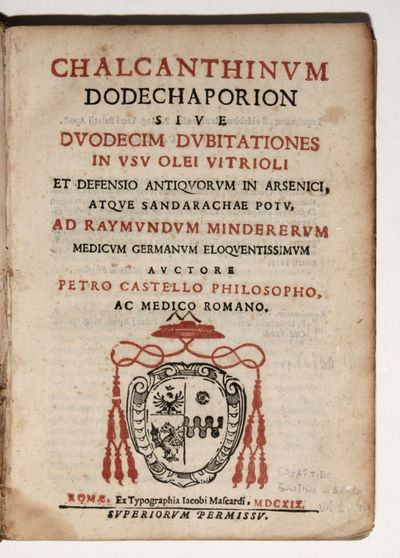 CHALCANTHINVM
DODECHAPORION
SIVE
DVODECIM DVBITATIONES
IN VSV OLEI VITRIOLI
ET DEFENSIO ANTIQVORVM IN ARSENICI,
ATQVE SANDARACHAE POTV,
AD RAYMVNDVM MINDERERVM
MEDICVM GERMANVM ELOQVENTISSIMVM
AVCTORE
PETRO CASTELLO PHILOSOPHO,
AC MEDICO ROMANO.
ROMÆ, Ex Typographia Iacobi Maſcardi, MDCXIX.
SVPERIORVM PERMISSV.